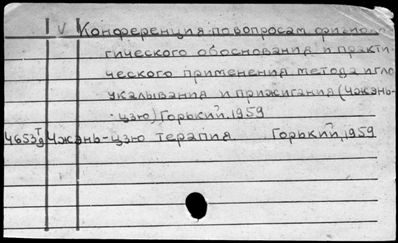 V Конференция по вопросам физиоло-
гического обоснования и практи-
ческого применения метода игло
укалывания и прижигания (Чжэнь-
-цзю) Горький. 1959
4653 Т/9 Чжэнь-цзю терапия Горький, 1959